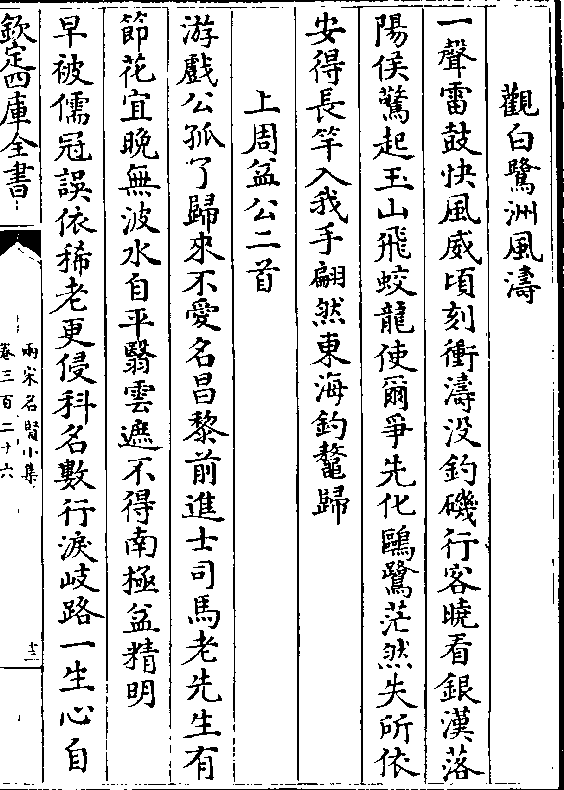 觀白鷺洲風濤
一聲雷鼓快風威頃刻衝濤没釣磯行客曉看銀漢落
陽侯驚起玉山飛蛟龍使爾爭先化鷗鷺茫然失所依
安得長竿入我手翩然東海釣鼇歸
上周益公二首
游戲公孤了歸來不愛名昌黎前進士司馬老先生有
節花宜晚無波水自平翳雲遮不得南極益精明
早被儒冠誤依稀老更侵科名數行淚岐路一生心自
欽定四庫全書
兩宋名賢小集
卷三百二十六
十二